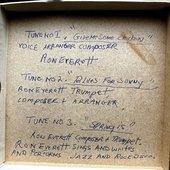 TUNE NO 1. "GIVE ME SOME LOVIN"
VOICE ARRANGER COMPOSER
RON EVERETT
TUNE NO 2. "BLUES FOR SONNY"
RON EVERETT TRUMPET
COMPOSER + ARRANGER
TUNE NO 3. "SPRING IS"
RON EVERETT COMPOSER & TRUMPET
RON EVERETT SINGS AND WRITES
AND PERFORMS JAZZ AND